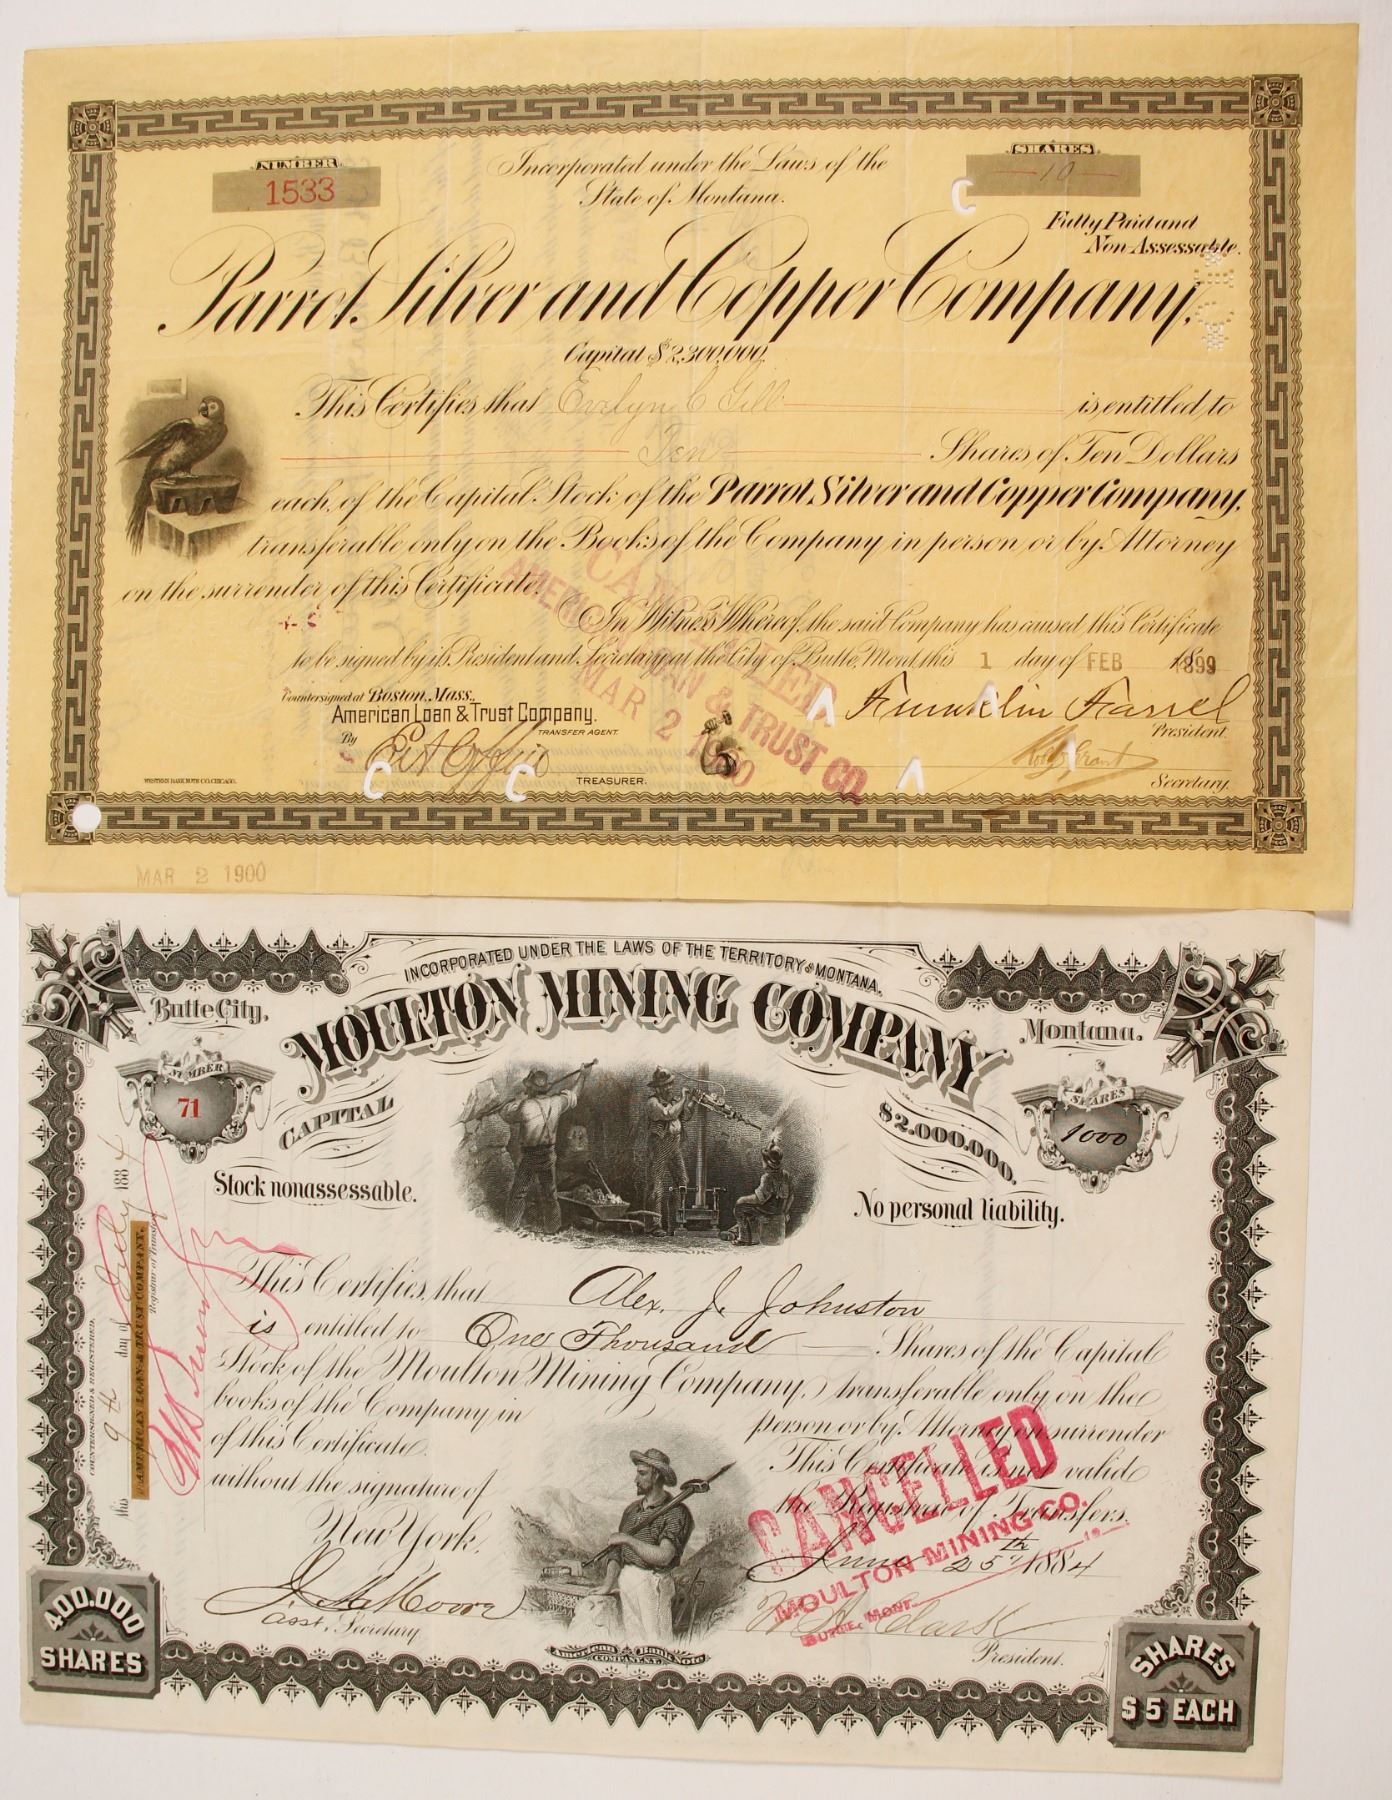 NUMBER
1533
Incorporated under the Laws of the
State of Montana.
SHARES
10
Fully Paid and
Non-Assessable.
Parrot Silver and Copper Company,
Capital $2,300,000.
This Certifies that Evelyn C Gill is entitled to
Ten Shares of Ten Dollars
each, of the Capital Stock of the Parrot Silver and Copper Company,
transferable only on the Books of the Company in person or by Attorney
on the surrender of this Certificate.
In Witness Whereof, the said Company has caused this Certificate
to be signed by its President and Secretary at the City of Butte, Mont, this 1 day of FEB 1899
Countersigned at Boston, Mass.,
American Loan & Trust Company.
TRANSFER AGENT.
By
TREASURER.
Franklin Farrel
President.
Secretary.
WESTERN BANK NOTE CO. CHICAGO.
CANCELLED
AMERICAN LOAN & TRUST CO.
MAR 2 1900
MAR 2 1900
INCORPORATED UNDER THE LAWS OF THE TERRITORY OF MONTANA.
Butte City,
Montana.
MOULTON MINING COMPANY
NUMBER
71
CAPITAL
$2,000,000.
SHARES
1000
Stock nonassessable.
No personal liability.
This Certifies that Alex. J. Johnston
is entitled to One Thousand Shares of the Capital
Stock of the Moulton Mining Company, transferable only on the
books of the Company in person or by Attorney on surrender
of this Certificate. This Certificate is not valid
without the signature of the Registrar of Transfers,
New York, June 25th 1884
Asst. Secretary
W. A. Clark
President.
American Bank Note
COMPANY, N.Y.
CANCELLED
MOULTON MINING CO.
BUTTE, MONT.
COUNTERSIGNED & REGISTERED,
This 9th day of July 1884
AMERICAN LOAN & TRUST COMPANY.
Registrar of Transfers
400,000
SHARES
SHARES
$5 EACH